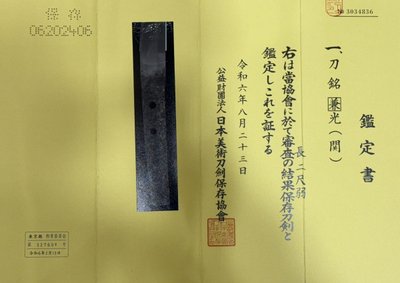 No 3034836
鑑定書
一、刀 銘 兼光(関)
長二尺弱
右は當協會に於て審査の結果保存刀剣と
鑑定しこれを証する
令和六年八月二十三日
公益財團法人 日本美術刀剣保存協會
保存
06202406
東京都 教育委員会